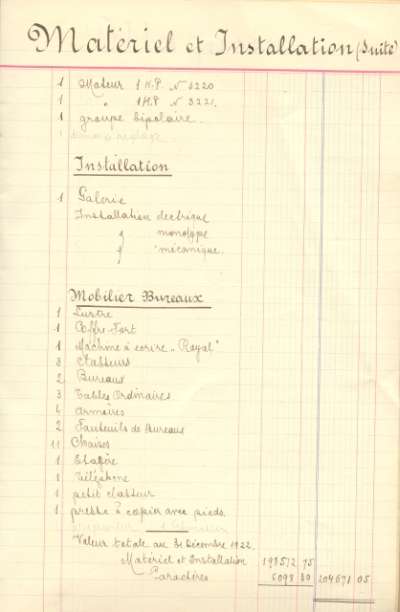 Matériel et Installation (Suite)
1 Moteur 1 H.P. N° 3220
1 " 1 H.P N° 3221.
1 groupe bipolaire.
Installation
1 Galerie
Installation électrique
" monotype
" mécanique.
Mobilier Bureaux
1 Lustre
1 Coffre-Fort
1 Machine à ecrire "Royal"
3 Classeurs
2 Bureaux
3 Tables Ordinaires
4 armoires
2 Fauteuils de Bureaux
11 Chaises
1 Etagère
1 Téléphone
1 petit classeur
1 presse à copier avec pieds.
Valeur totale au 31 Décembre 1922.
Matériel et Installation 198572 75
Caractères 6098 30 204671 05